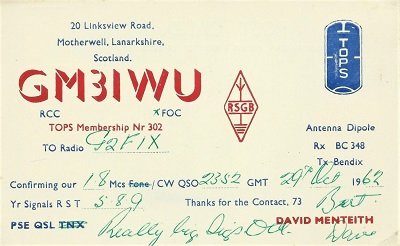 20 Linksview Road,
Motherwell, Lanarkshire,
Scotland.
TOPS
GM3IWU
RCC *FOC
RSGB
TOPS Membership Nr 302
TO Radio G2FIX
Antenna Dipole
Rx BC 348
Tx Bendix
Confirming our 18 Mcs Fone/CW QSO 2352 GMT 29th Oct 1962
Yr Signals R S T 589 Thanks for the Contact, 73 Bert.
PSE QSL TNX Really big sigs DAVID MENTEITH